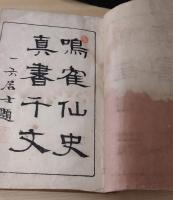 鳴雀仙史
真書千文
一六居士題